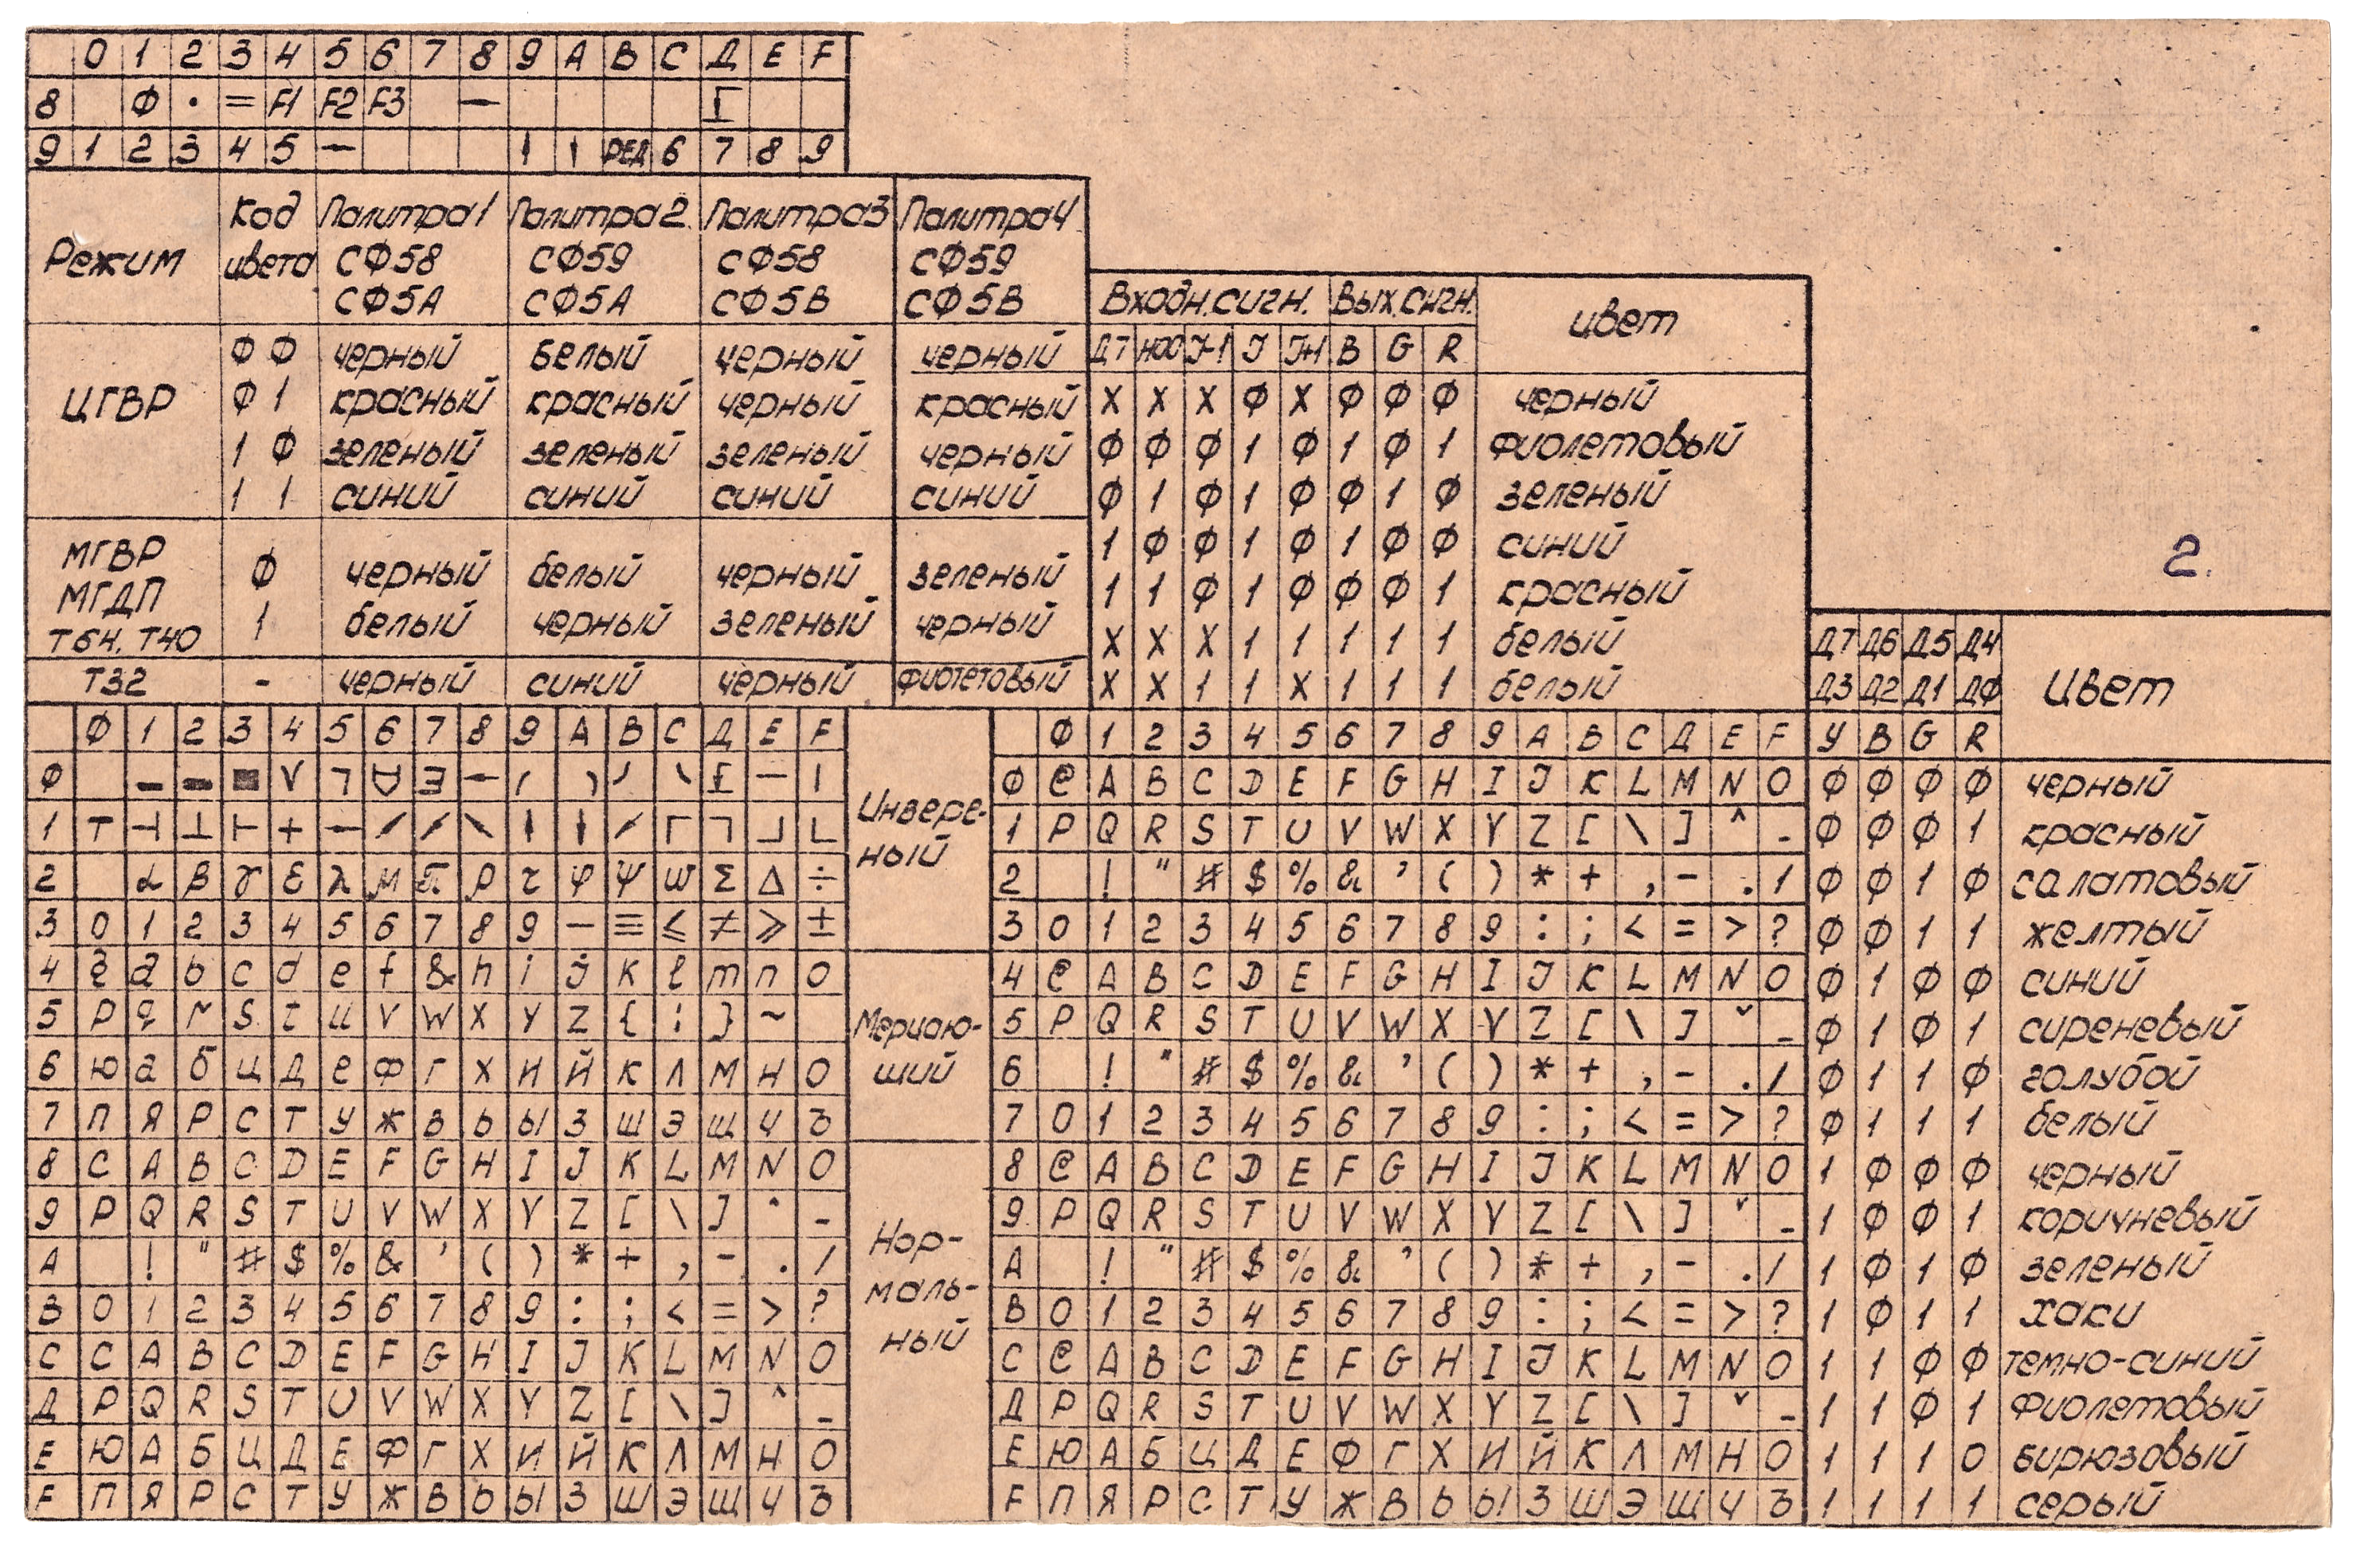 0 1 2 3 4 5 6 7 8 9 A B C Д E F
8 Ф · = F1 F2 F3 — Г
9 1 2 3 4 5 — РЕД 6 7 8 9
Режим Код цвета Палитра1 СФ58 СФ5А Палитра2 СФ59 СФ5А Палитра3 СФ58 СФ5В Палитра4 СФ59 СФ5В
ЦГВР
ФФ черный белый черный черный
Ф1 красный красный черный красный
1Ф зеленый зеленый зеленый черный
11 синий синий синий синий
МГВР
МГДП
Т64. Т40
Ф черный белый черный зеленый
1 белый черный зеленый черный
Т32 - черный синий черный фиотетовый
Входн.сигн. Вых.сигн. цвет
Д7 НОО J-1 J J+1 B G R
X X X Ф X Ф Ф Ф черный
Ф Ф Ф 1 Ф 1 Ф 1 фиолетовый
Ф 1 Ф 1 Ф Ф 1 Ф зеленый
1 Ф Ф 1 Ф 1 Ф Ф синий
1 1 Ф 1 Ф Ф Ф 1 красный
X X X 1 1 1 1 1 белый
X X 1 1 X 1 1 1 белый
2.
Ф 1 2 3 4 5 6 7 8 9 A B C Д E F
Ф
1 Т ⊣ ⊥ ⊢ + —
2 α β γ ε λ μ π ρ τ φ ψ ω Σ Δ ÷
3 0 1 2 3 4 5 6 7 8 9 — ≡ ≤ ≠ ≥ ±
4 a b c d e f & h i j k l m n o
5 p q r s t u v w x y z { ¦ } ~
6 ю а б ц д е ф г х и й к л м н о
7 п я р с т у ж в ь ы з ш э щ ч ъ
8 C A B C D E F G H I J K L M N O
9 P Q R S T U V W X Y Z [ \ ] ^ _
A ! " # $ % & ' ( ) * + , - . /
B 0 1 2 3 4 5 6 7 8 9 : ; < = > ?
C C A B C D E F G H I J K L M N O
Д P Q R S T U V W X Y Z [ \ ] ^ _
E Ю А Б Ц Д Е Ф Г Х И Й К Л М Н О
F П Я Р С Т У Ж В Ь Ы З Ш Э Щ Ч Ъ
Инверс-
ный
Мерцаю-
щий
Нор-
маль-
ный
Ф 1 2 3 4 5 6 7 8 9 A B C Д E F
Ф @ A B C D E F G H I J K L M N O
1 P Q R S T U V W X Y Z [ \ ] ^ _
2 ! " # $ % & ' ( ) * + , - . /
3 0 1 2 3 4 5 6 7 8 9 : ; < = > ?
4 @ A B C D E F G H I J K L M N O
5 P Q R S T U V W X Y Z [ \ ] ˇ _
6 ! " # $ % & ' ( ) * + , - . /
7 0 1 2 3 4 5 6 7 8 9 : ; < = > ?
8 @ A B C D E F G H I J K L M N O
9 P Q R S T U V W X Y Z [ \ ] ˇ _
A ! " # $ % & ' ( ) * + , - . /
B 0 1 2 3 4 5 6 7 8 9 : ; < = > ?
C @ A B C D E F G H I J K L M N O
Д P Q R S T U V W X Y Z [ \ ] ˇ _
E Ю А Б Ц Д Е Ф Г Х И Й К Л М Н О
F П Я Р С Т У Ж В Ь Ы З Ш Э Щ Ч Ъ
Д7 Д6 Д5 Д4
Д3 Д2 Д1 ДФ Цвет
У B G R
Ф Ф Ф Ф черный
Ф Ф Ф 1 красный
Ф Ф 1 Ф салатовый
Ф Ф 1 1 желтый
Ф 1 Ф Ф синий
Ф 1 Ф 1 сиреневый
Ф 1 1 Ф голубой
Ф 1 1 1 белый
1 Ф Ф Ф черный
1 Ф Ф 1 коричневый
1 Ф 1 Ф зеленый
1 Ф 1 1 хаки
1 1 Ф Ф темно-синий
1 1 Ф 1 фиолетовый
1 1 1 0 бирюзовый
1 1 1 1 серый